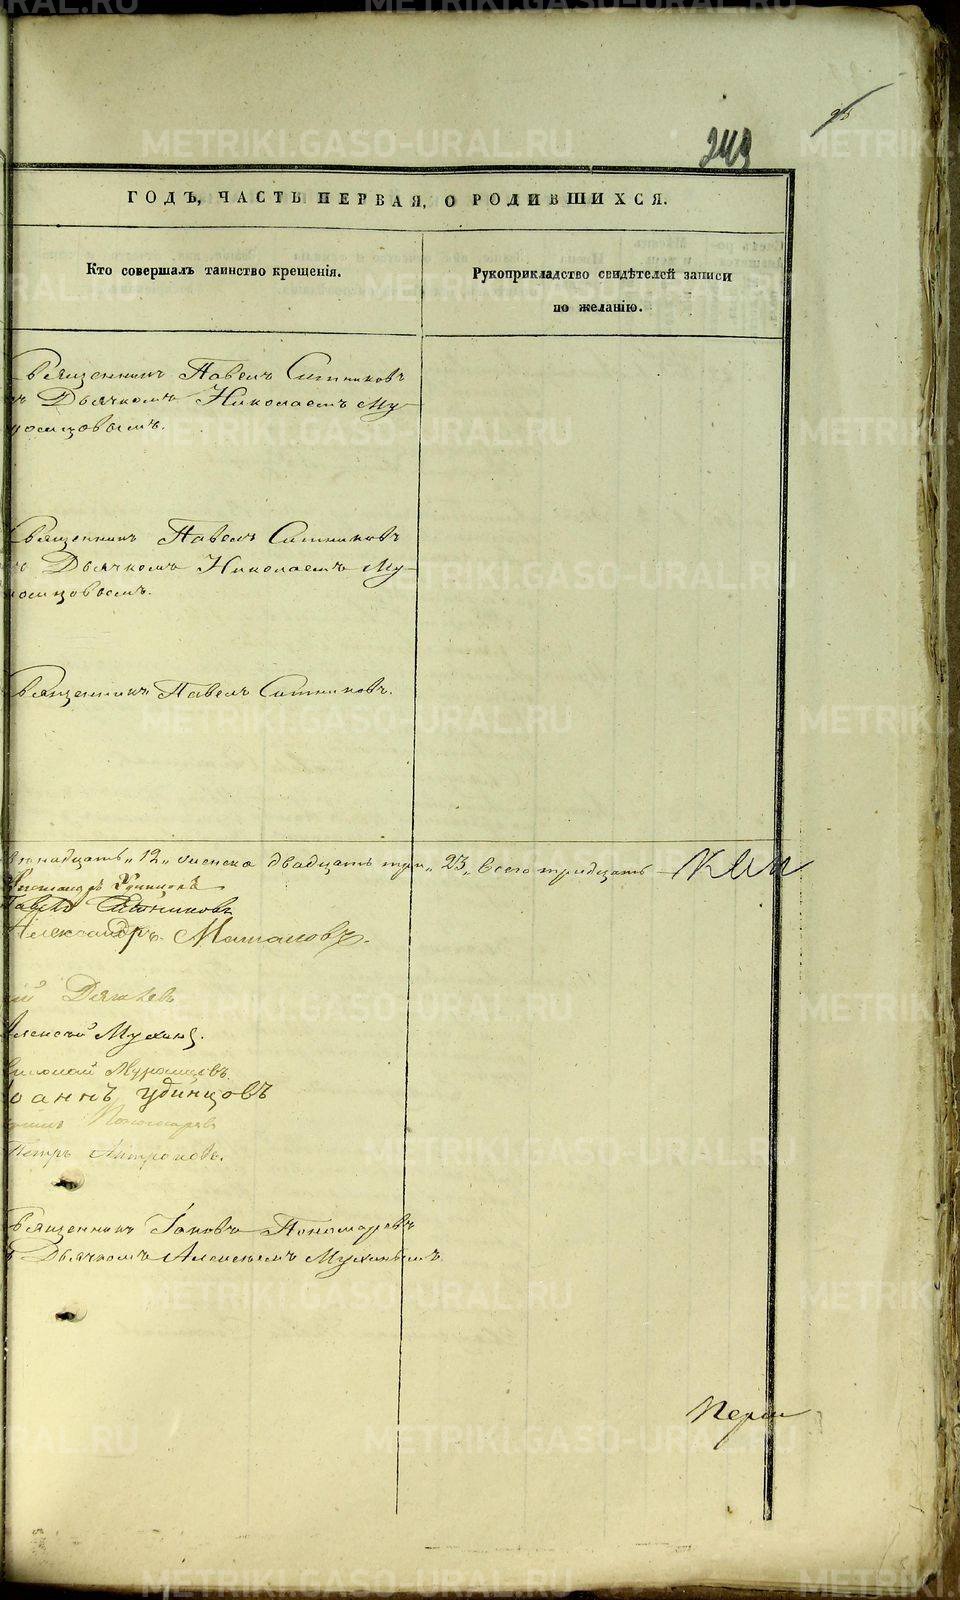 249
95
ГОДЪ, ЧАСТЬ ПЕРВАЯ, О РОДИВШИХСЯ.
Кто совершалъ таинство крещенія.
Рукоприкладство свидѣтелей записи
по желанію.
Священникъ Павелъ Ситниковъ
съ Дьячкомъ Николаемъ Му-
ромцовымъ.
Священникъ Павелъ Ситниковъ
съ Дьячкомъ Николаемъ Му-
ромцовымъ.
Священникъ Павелъ Ситниковъ.
двѣнадцать „12„ женска двадцать три „23„ всего тридцать
Александръ Удинцовъ
Павелъ Ситниковъ
Александръ
Дягилевъ
Алексѣй Мухинъ.
Николай Муромцовъ
Іоаннъ Удинцовъ
Пономаревъ
Петръ Антроповъ.
Священникъ Іаковъ Пономаревъ
съ Дьячкомъ Алексѣемъ Мухинымъ.
METRIKI.GASO-URAL.RU